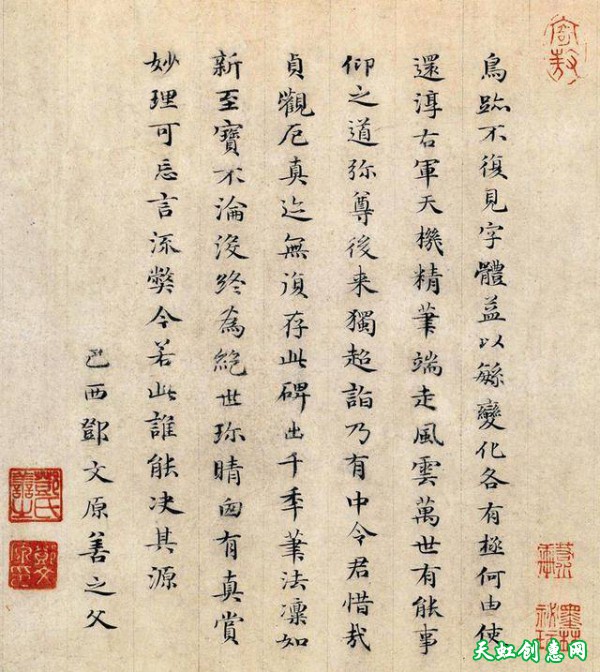 鳥跡不復見字體益以緐變化各有極何由使
還淳右軍天機精筆端走風雲萬世有能事
仰之道弥尊後来獨超詣乃有中令君惜哉
貞觀厄真迹無復存此碑出千季筆法凛如
新至寶不淪没終為絶世珍晴囱有真賞
妙理可忘言流弊今若此誰能决其源
巴西鄧文原善之父
墨林祕玩
天虹创惠网